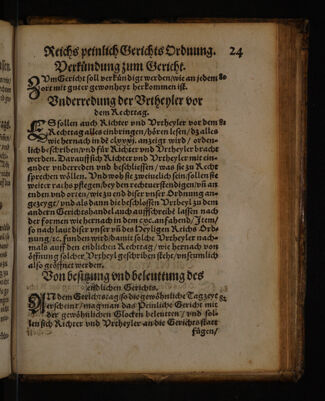 Reichs peinlich Gerichts Ordnung. 24
Verkündung zum Gericht.
ZVm Gericht soll verkündigt werden/wie an jedem 80
ort mit guter gewonheyt herkommen ist.
Vnderredung der Vrtheyler vor
dem Rechttag.
ES sollen auch Richter vnd Vrtheyler vor dem 81
Rechttag alles einbringen/hören lesen/dz alles
wie hernach in dē anzeigt wird/orden-
lich beschriben/vnd für Richter vnd Vrtheyler bracht
werden. Darauff sich Richter vnd Vrtheyler mit ein-
ander vnderreden vnd beschliessen/was sie zu Recht
sprechen wöllen. Vnd wo sie zweiuelich sein/sollen sie
weiter raths pflegen/bey den rechtuerstendigen/vñ an
enden vnd orten/wie zu end diser vnser Ordnung an-
gezeygt/vnd als dann die beschlossen Vrtheyl zu dem
andern Gerichtshandel auch auffschreibē lassen nach
der formen wie hernach in dem anfahend/Item/
so nach laut diser vnser vñ des Heyligen Reichs Ord-
nung/ꝛc. funden wird/damit solche Vrtheyler nach-
mals auff den endlichen Rechttag/wie hernach von
öffnung solcher Vrtheyl geschriben steht/vnseumlich
also geöffnet werden.
Von besitzung vnd beleuttung des
endlichen Gerichts.
AN dem Gerichtstag/so die gewöhnliche Tagzeyt 82
erscheint/mag man das Peinliche Gericht mit
der gewöhnlichen Glocken beleutten/vnd sol-
len sich Richter vnd Vrtheyler an die Gerichtsstatt
fügen/